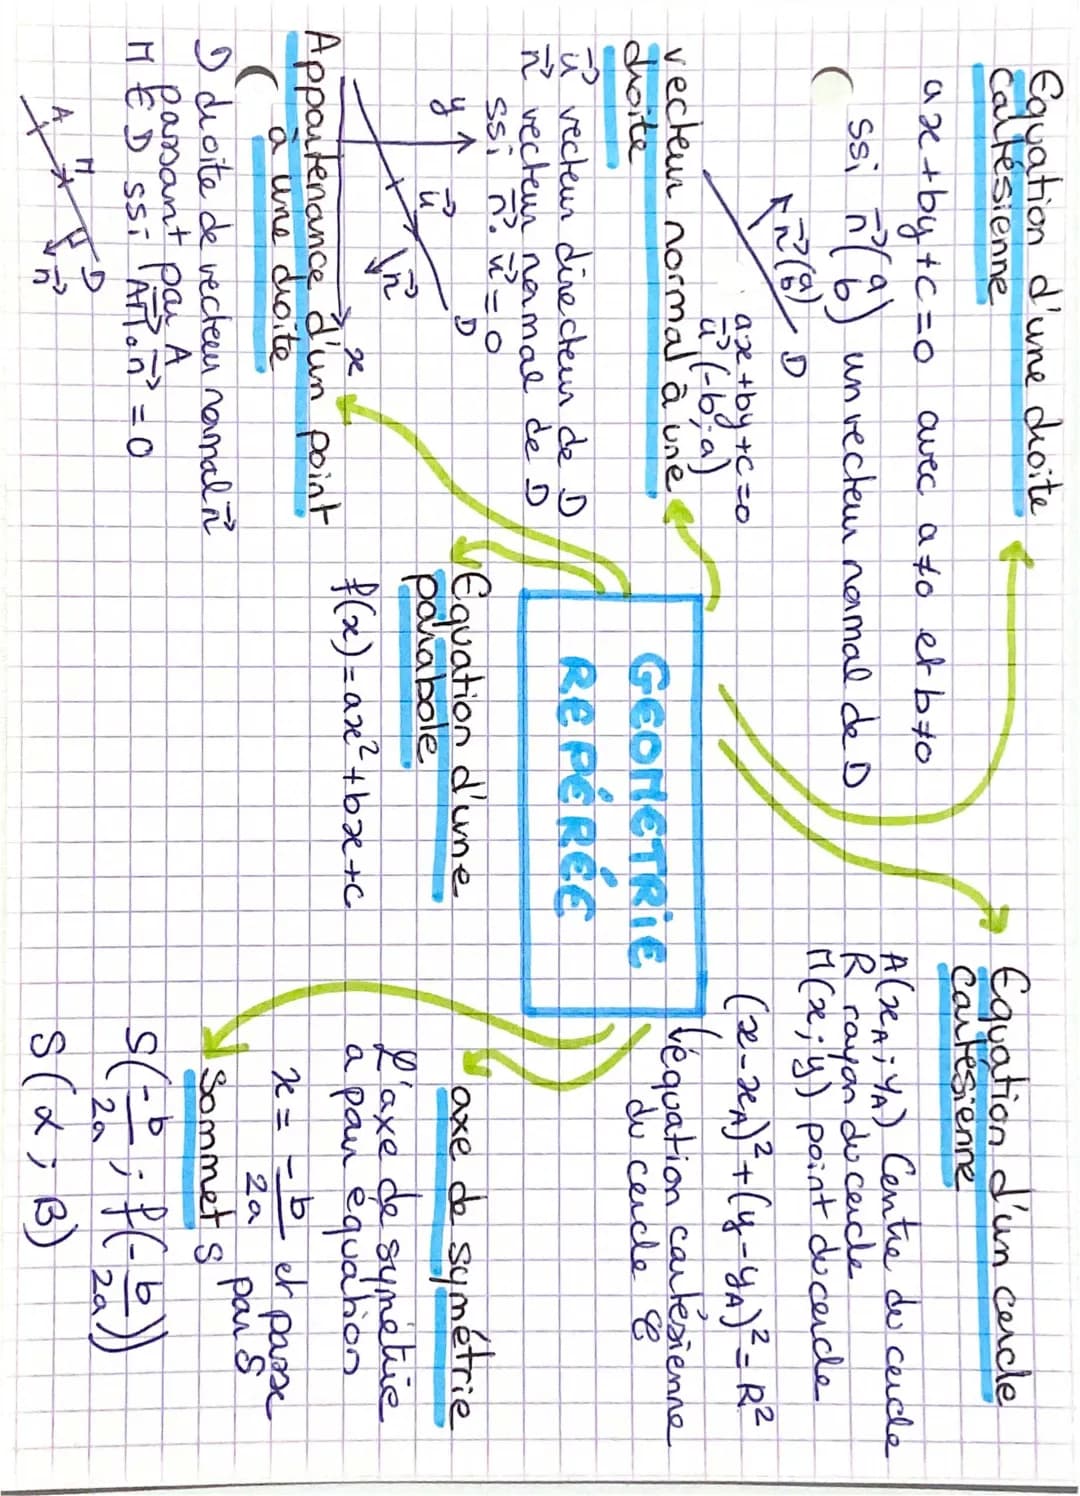 GEOMETRIE
REPÉRÉE
Equation d'une droite
cartésienne
ax+by+c=0 avec a≠0 et b≠0
ssi n⃗(a b) un vecteur normal de D
n⃗(a b)
D
ax+by+c=0
u⃗(-b;a)
vecteur normal à une
droite
u⃗ vecteur directeur de D
n⃗ vecteur normal de D
ssi n⃗.u⃗=0
y
u⃗
n⃗
D
x
Appartenance d'un point
à une droite
D droite de vecteur normal n⃗
passant par A
M ∈ D ssi AM⃗.n⃗=0
A
M
D
n⃗
Equation d'une
parabole
f(x)=ax²+bx+c
Equation d'un cercle
cartésienne
A(xA;yA) Centre du cercle
R rayon du cercle
M(x;y) point du cercle
(x-xA)²+(y-yA)²=R²
l'équation cartésienne
du cercle C
axe de symétrie
L'axe de symétrie
a pour équation
x=-b/2a et passe
par S
Sommet S
S(-b/2a; f(-b/2a))
S(α; B)